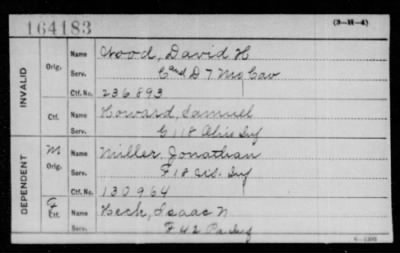 164183
(3-H-4)
INVALID
Orig.
Name Wood, David H
Serv. C and D 7 Mo Cav
Ctf. No. 236893
Ctf.
Name Howard, Samuel
Serv. G 118 Ohio Inf
DEPENDENT
M.
Orig.
Name Miller, Jonathan
Serv. F 18 Inf
Ctf. No. 130964
F
Ctf.
Name Heck, Isaac N
Serv. F 42 Pa Inf